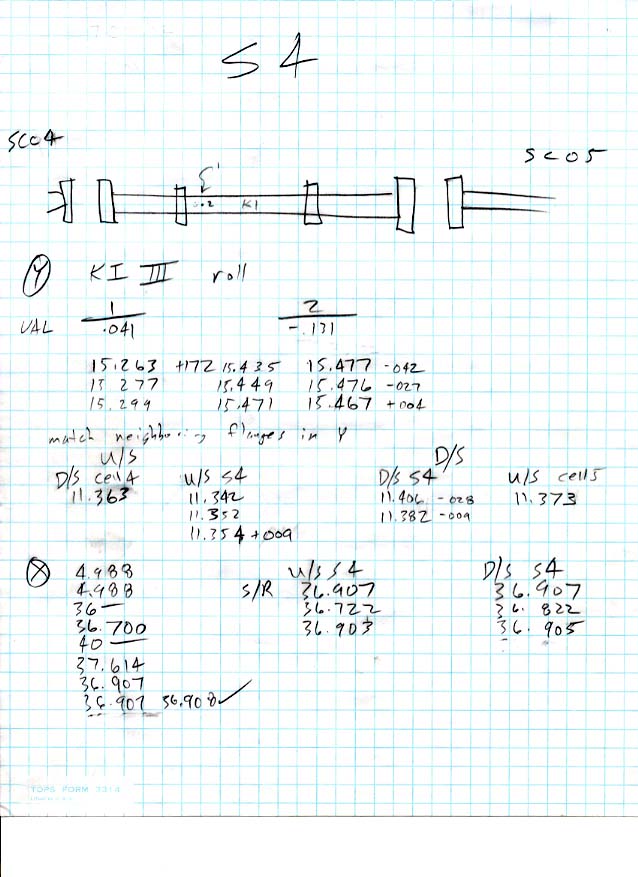 S4
SC04
SC05
.02 K1
Y KI III roll
1 2
VAL .041 -.131
15.263 +172 15.435 15.477 -042
15 277 15.449 15.476 -027
15.299 15.471 15.467 +004
match neighboring flanges in Y
U/S D/S
D/S cell 4 U/S S4 D/S S4 U/S cell 5
11.363 11.342 11.406 -028 11.373
11.352 11.382 -009
11.354 +009
X 4.988 U/S S4 D/S S4
4.988 S/R 36.907 36.907
36— 36.722 36.822
36.700 36.903 36.905
40—
37.614
36.907
36.907 36.908 ✓
TOPS FORM 3314